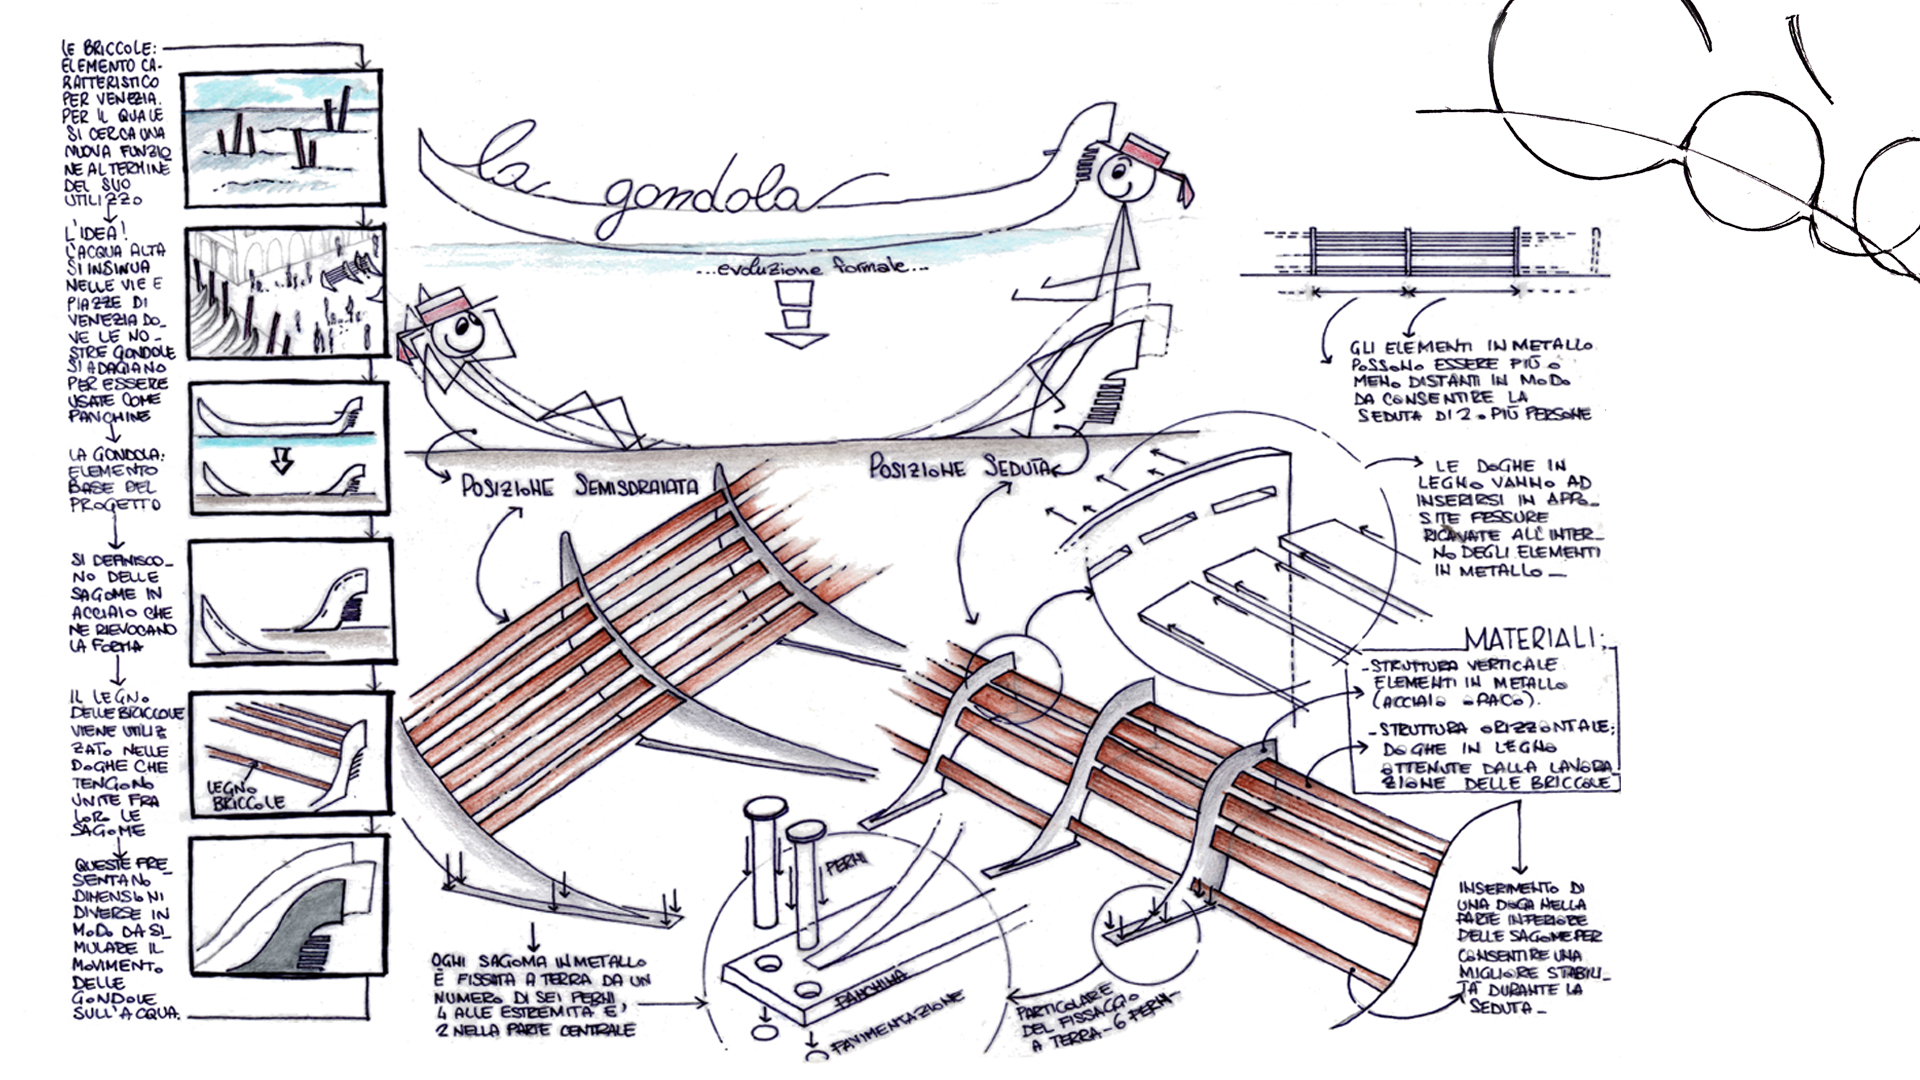 LE BRICCOLE:
ELEMENTO CA-
RATTERISTICO
PER VENEZIA.
PER IL QUALE
SI CERCA UNA
NUOVA FUNZIO
NE AL TERMINE
DEL SUO
UTILIZZO
L'IDEA!
L'ACQUA ALTA
SI INSINUA
NELLE VIE E
PIAZZE DI
VENEZIA DO_
VE LE NO_
STRE GONDOLE
SI ADAGIANO
PER ESSERE
USATE COME
PANCHINE
LA GONDOLA:
ELEMENTO
BASE DEL
PROGETTO
SI DEFINISCO_
NO DELLE
SAGOME IN
ACCIAIO CHE
NE RIEVOCANO
LA FORMA
IL LEGNO
DELLE BRICCOLE
VIENE UTILIZ
ZATO NELLE
DOGHE CHE
TENGONO
UNITE FRA
LORO LE
SAGOME
QUESTE PRE_
SENTANO
DIMENSIONI
DIVERSE IN
MODO DA SI_
MULARE IL
MOVIMENTO
DELLE
GONDOLE
SULL'ACQUA.
LEGNO
BRICCOLE
la gondola
...evoluzione formale...
POSIZIONE SEMISDRAIATA
POSIZIONE SEDUTA
GLI ELEMENTI IN METALLO
POSSONO ESSERE PIÙ O
MENO DISTANTI IN MODO
DA CONSENTIRE LA
SEDUTA DI 2 o PIÙ PERSONE
LE DOGHE IN
LEGNO VANNO AD
INSERIRSI IN APPO_
SITE FESSURE
RICAVATE ALL'INTER_
NO DEGLI ELEMENTI
IN METALLO _
MATERIALI:
-STRUTTURA VERTICALE
ELEMENTI IN METALLO
(ACCIAIO OPACO).
-STRUTTURA ORIZZONTALE:
DOGHE IN LEGNO
OTTENUTE DALLA LAVORA_
ZIONE DELLE BRICCOLE
INSERIMENTO DI
UNA DOGA NELLA
PARTE INFERIORE
DELLE SAGOME PER
CONSENTIRE UNA
MIGLIORE STABILI_
TÀ DURANTE LA
SEDUTA _
OGNI SAGOMA IN METALLO
È FISSATA A TERRA DA UN
NUMERO DI SEI PERNI
4 ALLE ESTREMITÀ E'
2 NELLA PARTE CENTRALE
PERNI
PANCHINA
PAVIMENTAZIONE
PARTICOLARE
DEL FISSAGGIO
A TERRA - 6 PERNI -